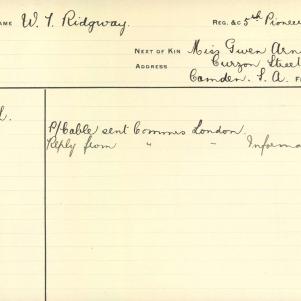 NAME W. T. Ridgway. REG. &C 5th Pioneer
NEXT OF KIN Miss Gwen Arn
ADDRESS Curzon Street
Camden. S. A.
P/Cable sent Commrs London.
Reply from " " Informa